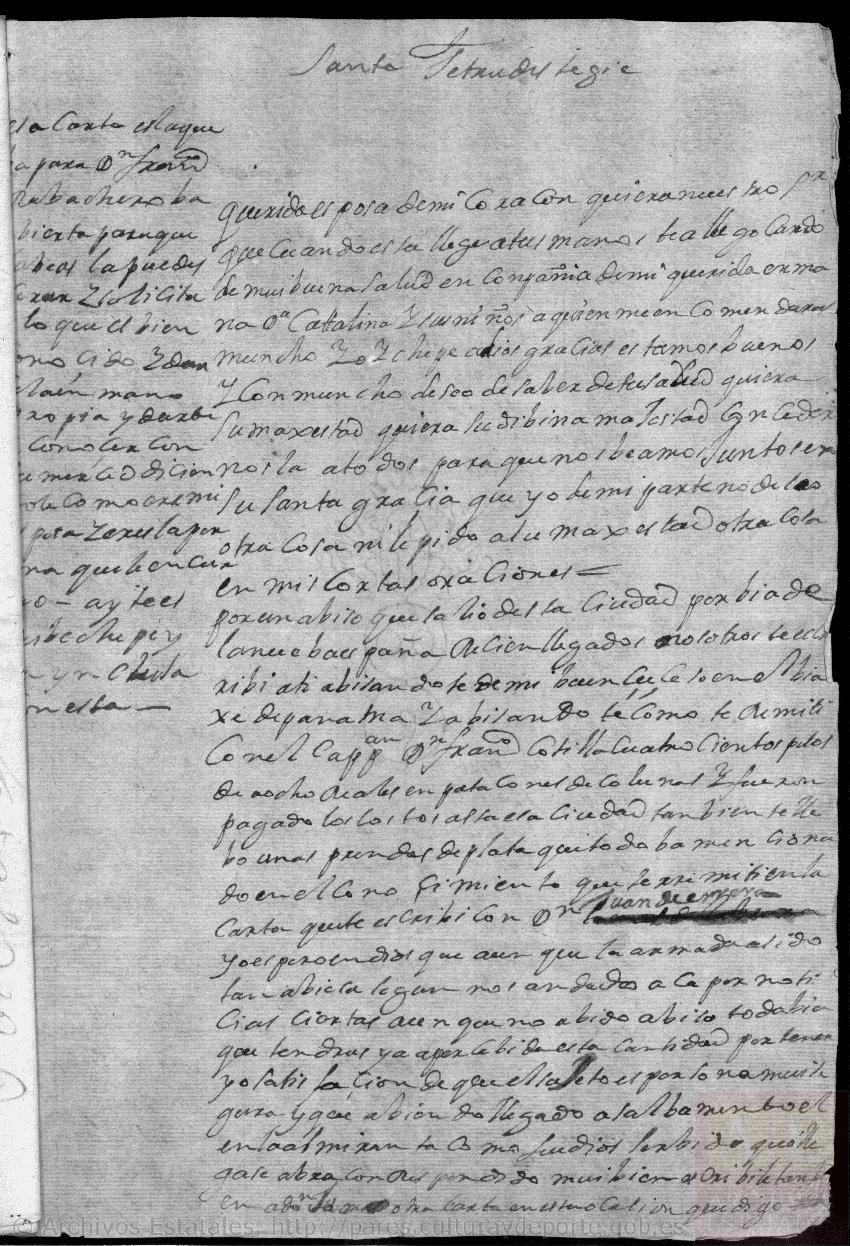 Santa Jetrudes te gie
esta Carta es la que
ba para Dn franco
Rabachero ba
bierta para que
sabeas la puedes
lerar Y solicita
lo que el bien
cono cido Y dar
la en mano
propia y darte
a conocer con
su merced dicien
dole como eremi
esposa Y eres la per
na que le encar
go - ay te es
cribe chepe y
en esta —
querida esposa de mi Coraçon quiera nuestro sr
que Cuando esta llegue a tus manos te alle goCando
de mui buena salud en Conpañia de mi querida erma
na Da Cattalina Y sus niños a quien me en Comendaras
muncho Yo Y chepe a dios gracias estamos buenos
Y Con muncho deseo de saber de tu salud quiera
su maxestad quiera su dibina maJestad Conceder
nosla a todos para que nos beamos Juntos en
su santa gracia que yo de mi parte no deseo
otra Cosa ni le pido a su maxestad otra Cosa
en mis Cortas oraciones =
por un abiso que salio de esta Ciudad por bia de
la nueba españa Recien llegados nosotros te esc
ribi a ti abisandote de mi buen suCeso en el bia
xe de panama Y abisando te Como te Remiti
Con el Cappan Dn franco Cotilla Cuatro Cientos pesos
de aocho Reales en pataCones de Colunas Y fueron
pagado los Costos asta esa Ciudad tanbien te lle
bo unas prendas de plata que todo ba menCiona
do en el ConoSimiento que te rremiti en la
Carta que te escribi Con Dn Juan de errera
yo espero en dios que aun que la armada a sido
tan abiesa segun nos an dado aCa por noti
Cias Ciertas aun que no abido abiso todabia
que tendras ya aperCebida esta Cantidad por tener
yo satisfaCion de que el suJeto es por lo na mui se
gura y que abiendo llegado a salbamento el
en la almiranta Como fue dios serbido que lle
gase abra Correspondido mui bien escribile tan
en otra Carta en esta ocasion que digo
© Archivos Estatales, http://pares.culturaydeporte.gob.es